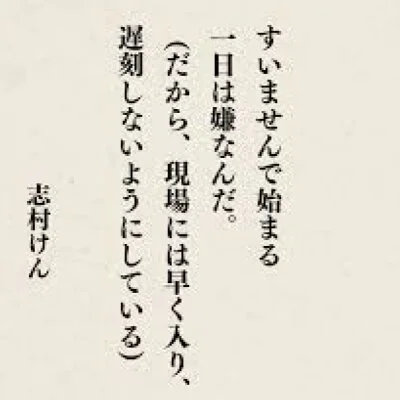 すいませんで始まる
一日は嫌なんだ。
(だから、現場には早く入り、
遅刻しないようにしている)
志村けん